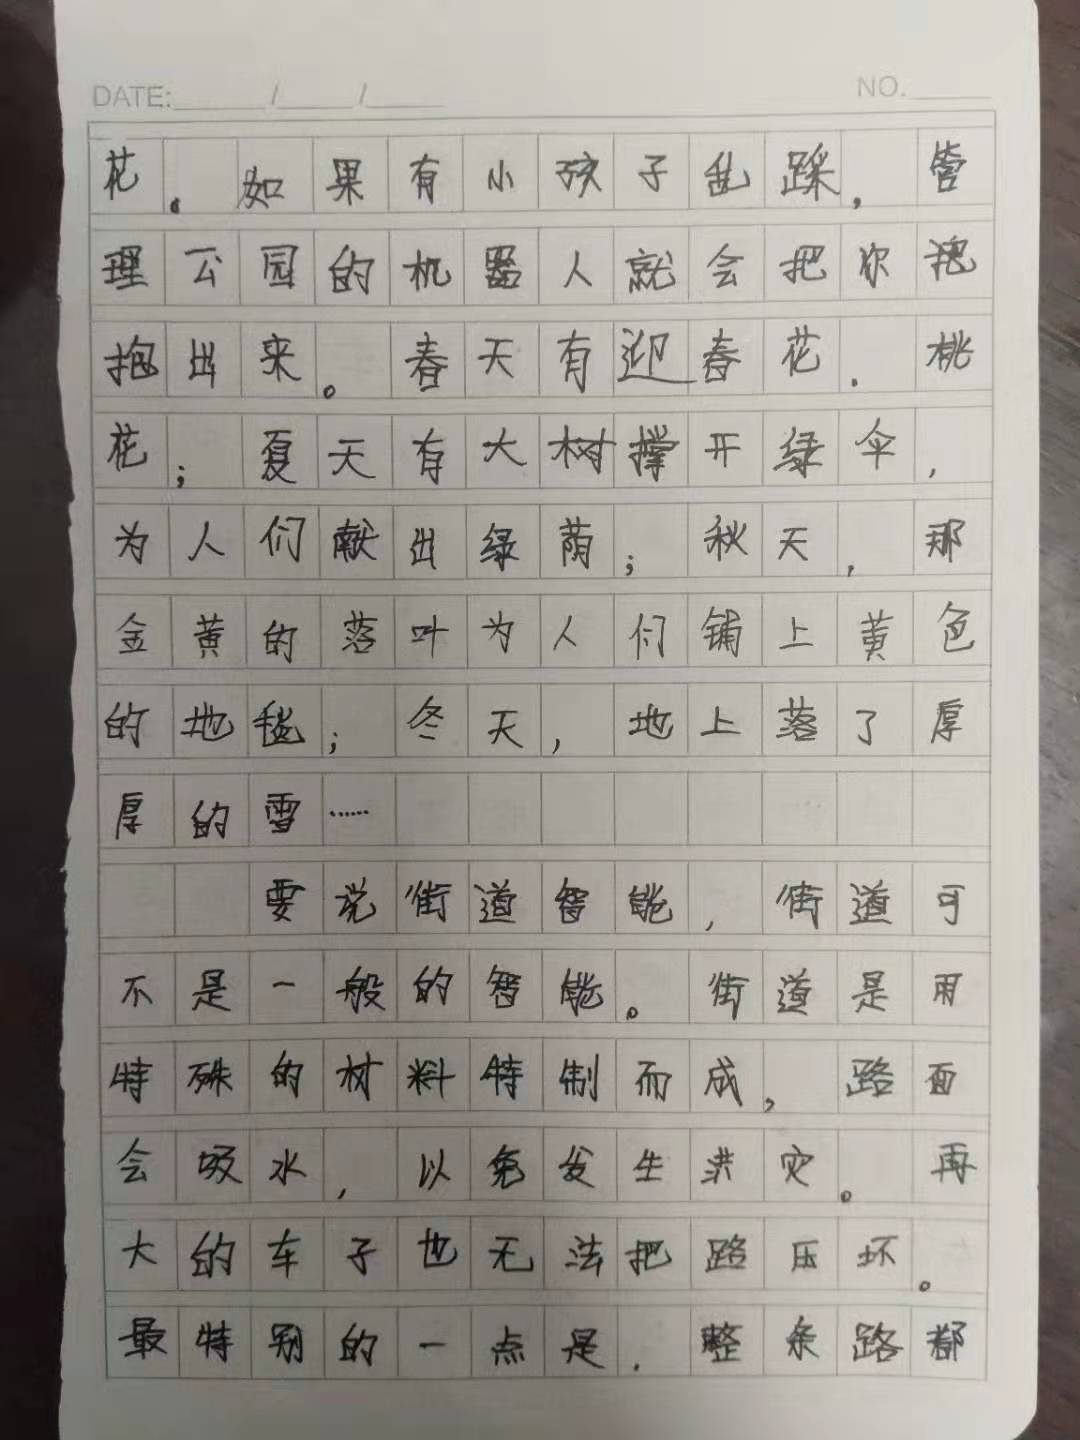 DATE: / / NO.
花。如果有小孩子乱踩,管
理公园的机器人就会把你
抱出来。春天有迎春花.桃
花;夏天有大树撑开绿伞,
为人们献出绿荫;秋天,那
金黄的落叶为人们铺上黄色
的地毯;冬天,地上落了厚
厚的雪……
要说街道智能,街道可
不是一般的智能。街道是用
特殊的材料特制而成,路面
会吸水,以免发生洪灾。再
大的车子也无法把路压坏。
最特别的一点是.整条路都